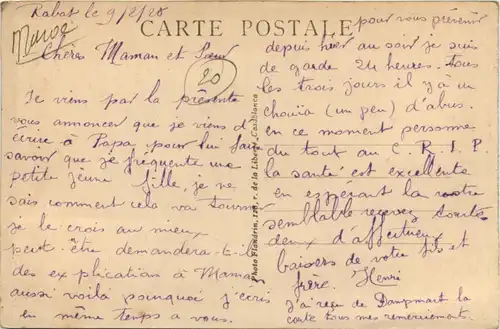 Rabat le 9/2/28
Maroc
CARTE POSTALE
Chères Maman et Sœur
20
Je viens par la présente
vous annoncer que je viens d'
écrire à Papa pour lui faire
savoir que je fréquente une
petite jeune fille, je ne
sais comment cela va tourner
je le crois au mieux
peut-être demandera-t-il
des explications à Maman
aussi voilà pourquoi j'écris
en même temps à vous.
Photo Flandrin, r. de la Liberté, Casablanca
pour vous prévenir
depuis hier au soir je suis
de garde 24 heures. Tous
les trois jours il y a un
chouïa (un peu) d'abus.
en ce moment personne
du tout au C. R. I. P.
la santé est excellente
en espérant la vôtre
semblable recevez toutes
deux d'affectueux
baisers de votre fils et
frère. Henri
J'ai reçu de Dampmart la
carte tous mes remerciements.